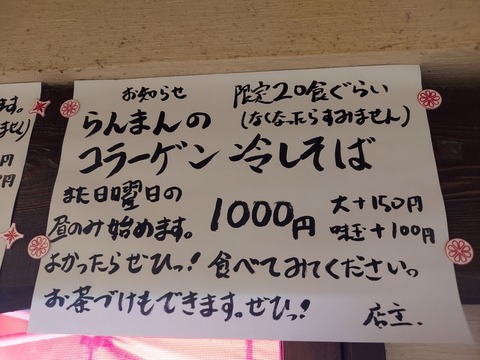 お知らせ 限定20食ぐらい
らんまんの (なくなったらすみません)
コラーゲン 冷しそば
また日曜日の
昼のみ始めます。 1000円 大+150円
味玉+100円
よかったらぜひっ! 食べてみてくださいっ
お茶づけもできます。ぜひっ!
店主.
ます。
ません)
円
円